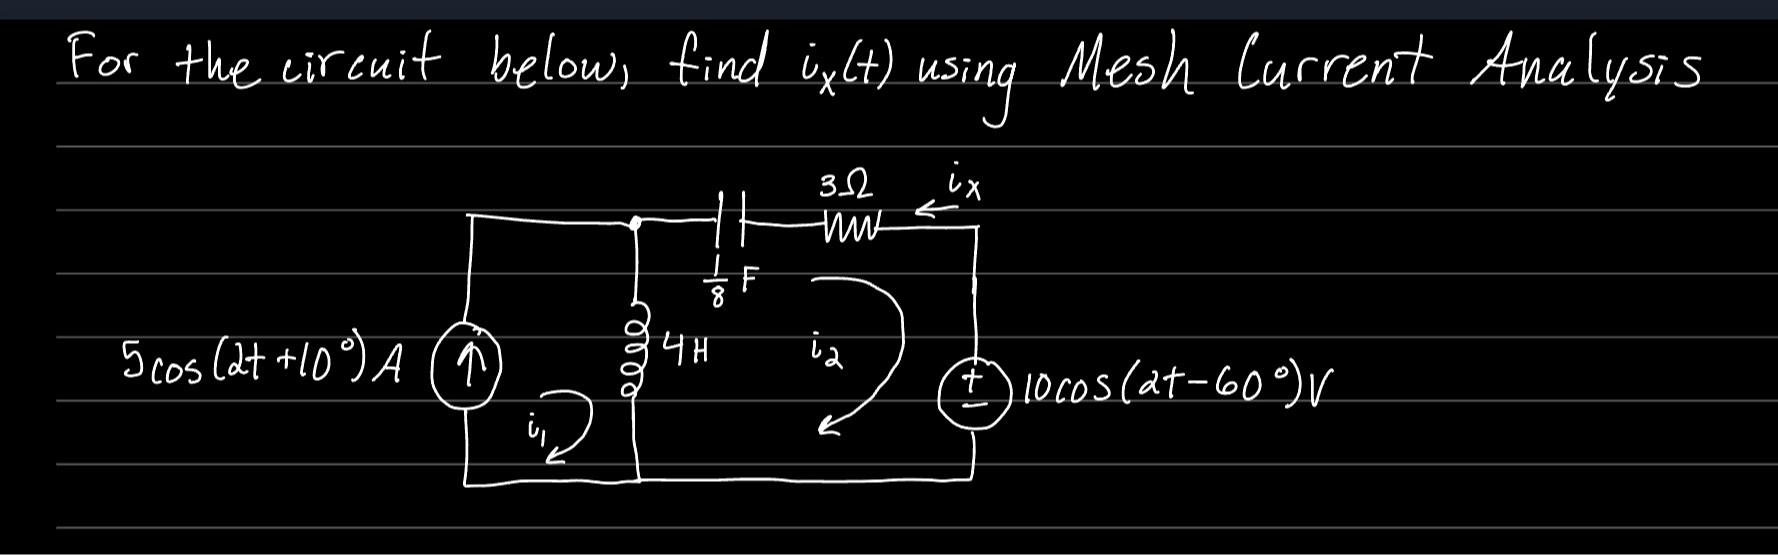 For the circuit below, find ix(t) using Mesh Current Analysis
3Ω
ix
1/8 F
5cos(2t+10°)A
4H
i2
+
-
10cos(2t-60°)V
i1